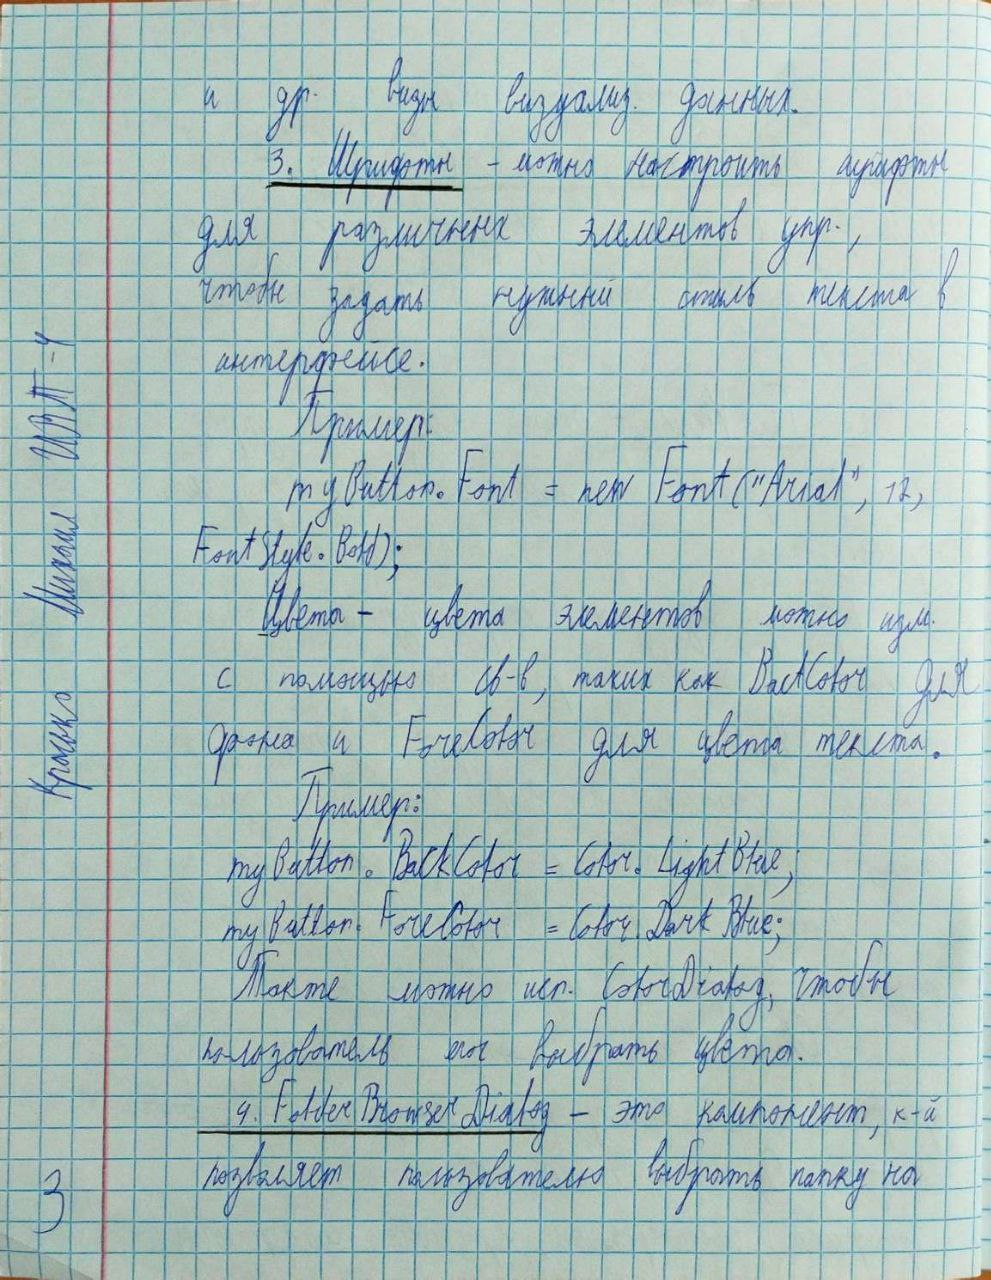 и др. виды визуализ. данных.
3. Шрифты - можно настроить шрифты
для различных элементов упр.,
чтобы задать нужный стиль текста в
интерфейсе.
Пример:
myButton.Font = new Font("Arial", 12,
FontStyle.Bold);
Цвета - цвета элементов можно изм.
с помощью св-в, таких как BackColor для
фона и ForeColor для цвета текста.
Пример:
myButton.BackColor = Color.LightBlue;
myButton.ForeColor = Color.DarkBlue;
Также можно исп. ColorDialog, чтобы
пользователь мог выбрать цвета.
4. FolderBrowserDialog - это компонент, к-й
позволяет пользователю выбрать папку на
Михаил ИВТ-4
3